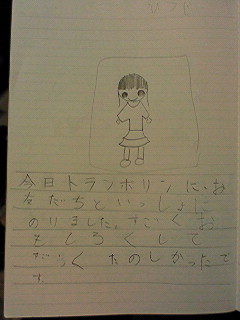 今日トランポリンに、お
友だちといっしょに
のりました。すごくお
もしろくして
く たのしかったで
す